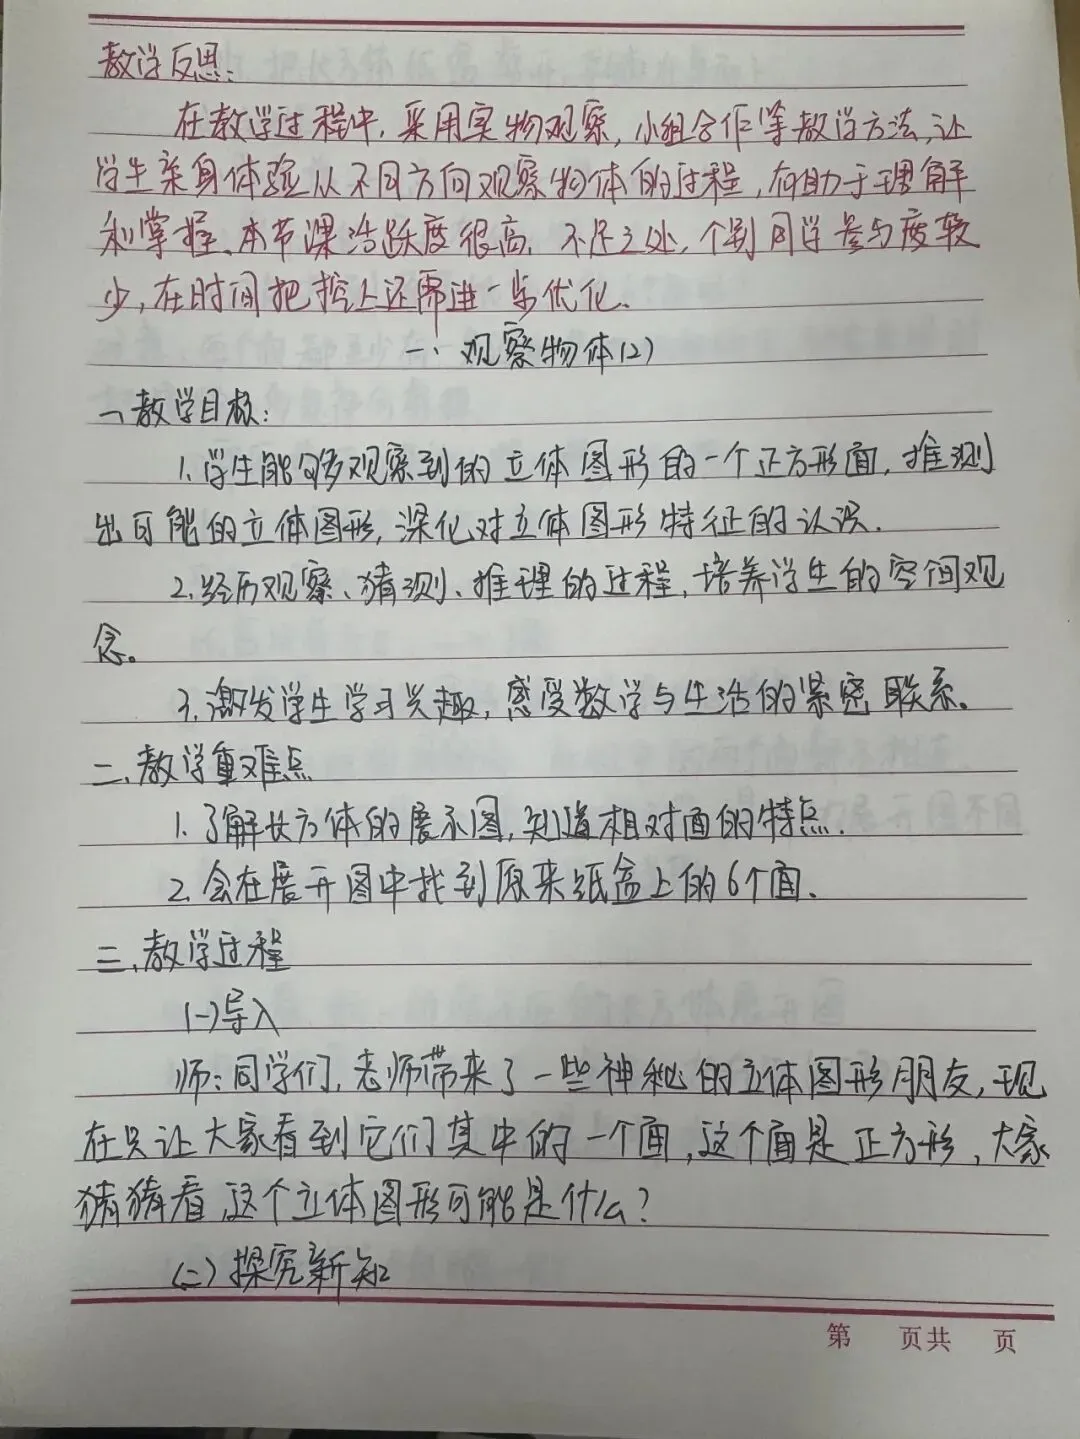 教学反思:
在教学过程中,采用实物观察,小组合作等教学方法,让
学生亲身体验从不同方向观察物体的过程,有助于理解
和掌握、本节课活跃度很高、不足之处,个别同学参与度较
少,在时间把控上还需进一步优化.
一、观察物体(2)
一、教学目标:
1.学生能够观察到的立体图形的一个正方形面,推测
出可能的立体图形,深化对立体图形特征的认识.
2.经历观察、猜测、推理的过程,培养学生的空间观
念。
3.激发学生学习兴趣,感受数学与生活的紧密联系。
二、教学重难点
1.了解长方体的展示图,知道相对面的特点.
2.会在展开图中找到原来纸盒上的6个面、
三、教学过程
(一)导入
师:同学们,老师带来了一些神秘的立体图形朋友,现
在只让大家看到它们其中的一个面,这个面是正方形,大家
猜猜看,这个立体图形可能是什么?
(二)探究新知
第 页共 页